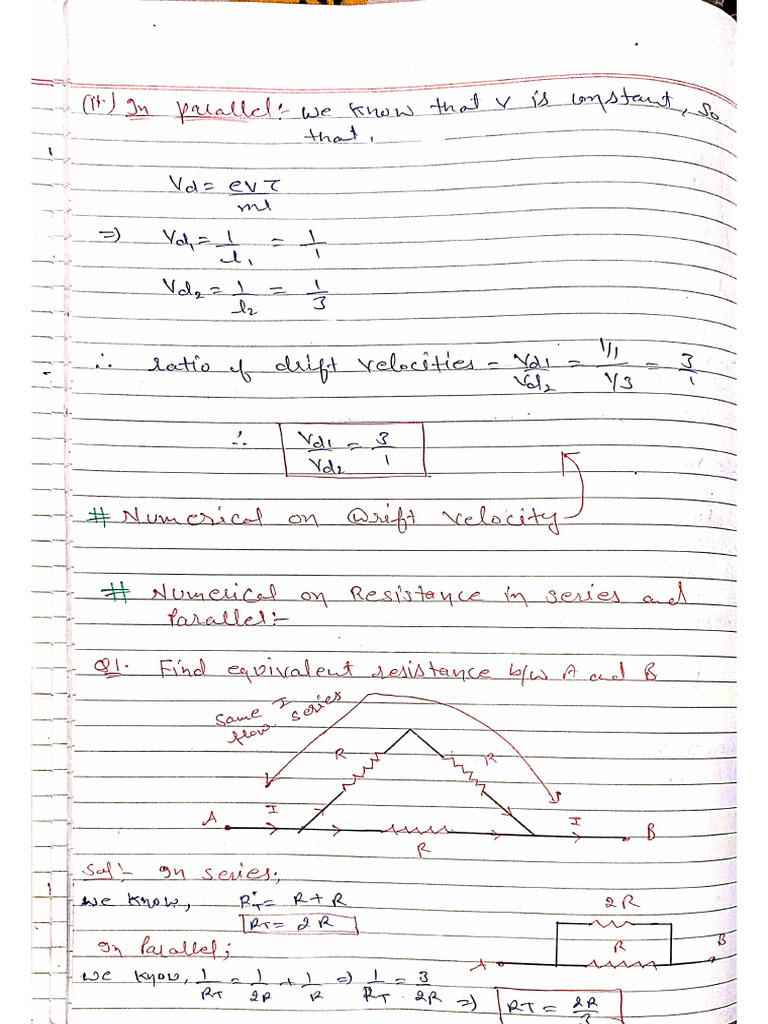 (ii) In parallel:- we know that V is constant, so
that,
Vd = eVτ/ml
=> Vd1 = 1/l1 = 1/1
Vd2 = 1/l2 = 1/3
∴ ratio of drift velocities = Vd1/Vd2 = 1/1 / 1/3 = 3/1
∴ Vd1/Vd2 = 3/1
# Numerical on Drift velocity
# Numerical on Resistance in series and
Parallel:-
Q1. Find equivalent resistance b/w A and B
Same I
flow series
R R
A I I B
R
Sol:- In series,
we know, RT = R + R
RT = 2R
2R
In Parallel;
R
A B
we know, 1/RT = 1/2R + 1/R => 1/RT = 3/2R => RT = 2R/3